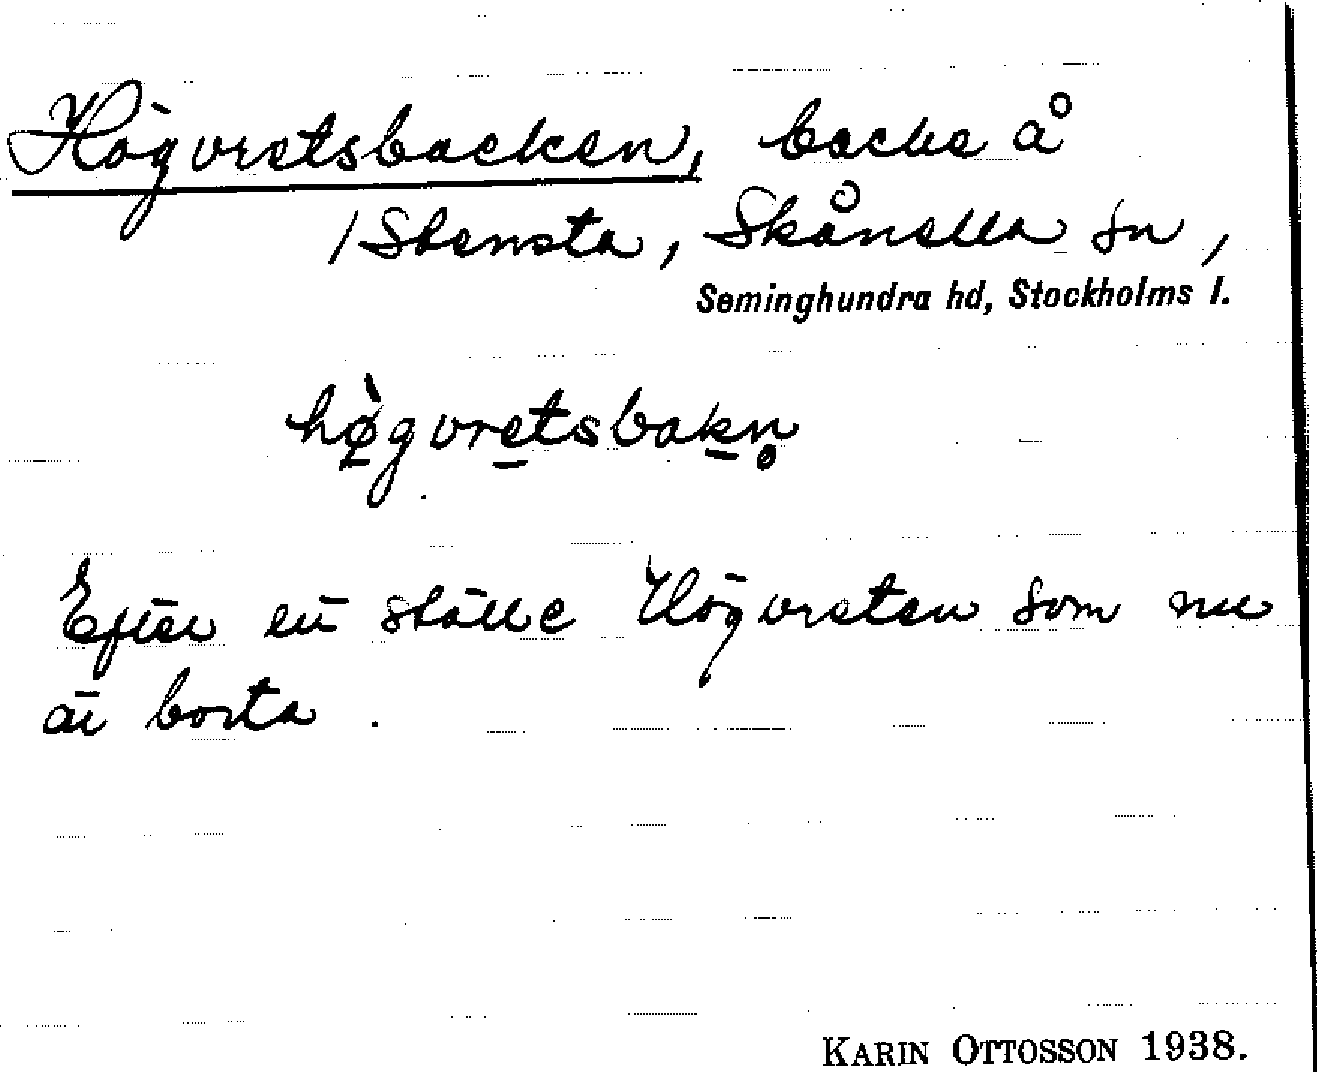 Högvretsbacken, backe å
/Stensta, Skånella sn,
Seminghundra hd, Stockholms l.
hø̀gvretsbakn̥
Efter ett ställe Högvreten som nu
är borta.
KARIN OTTOSSON 1938.